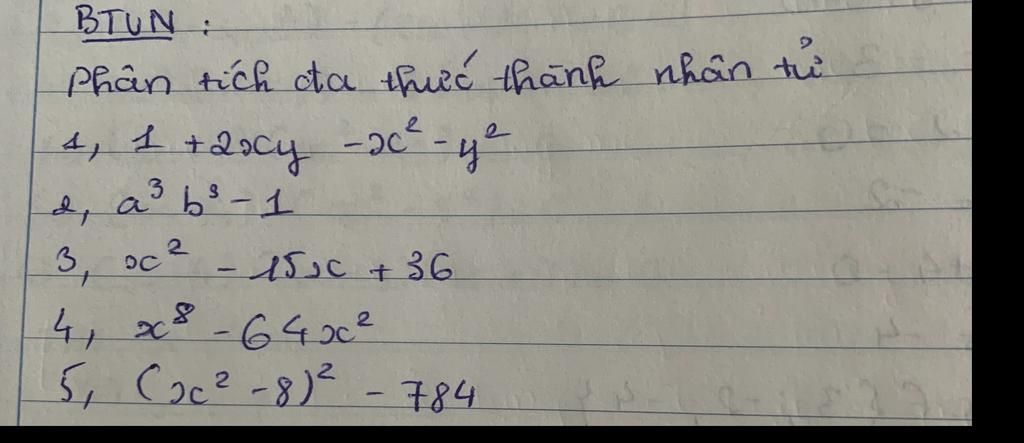 BTVN :
Phân tích đa thức thành nhân tử
1, 1 + 2xy - x² - y²
2, a³ b³ - 1
3, x² - 15x + 36
4, x⁸ - 64x²
5, (x² - 8)² - 784